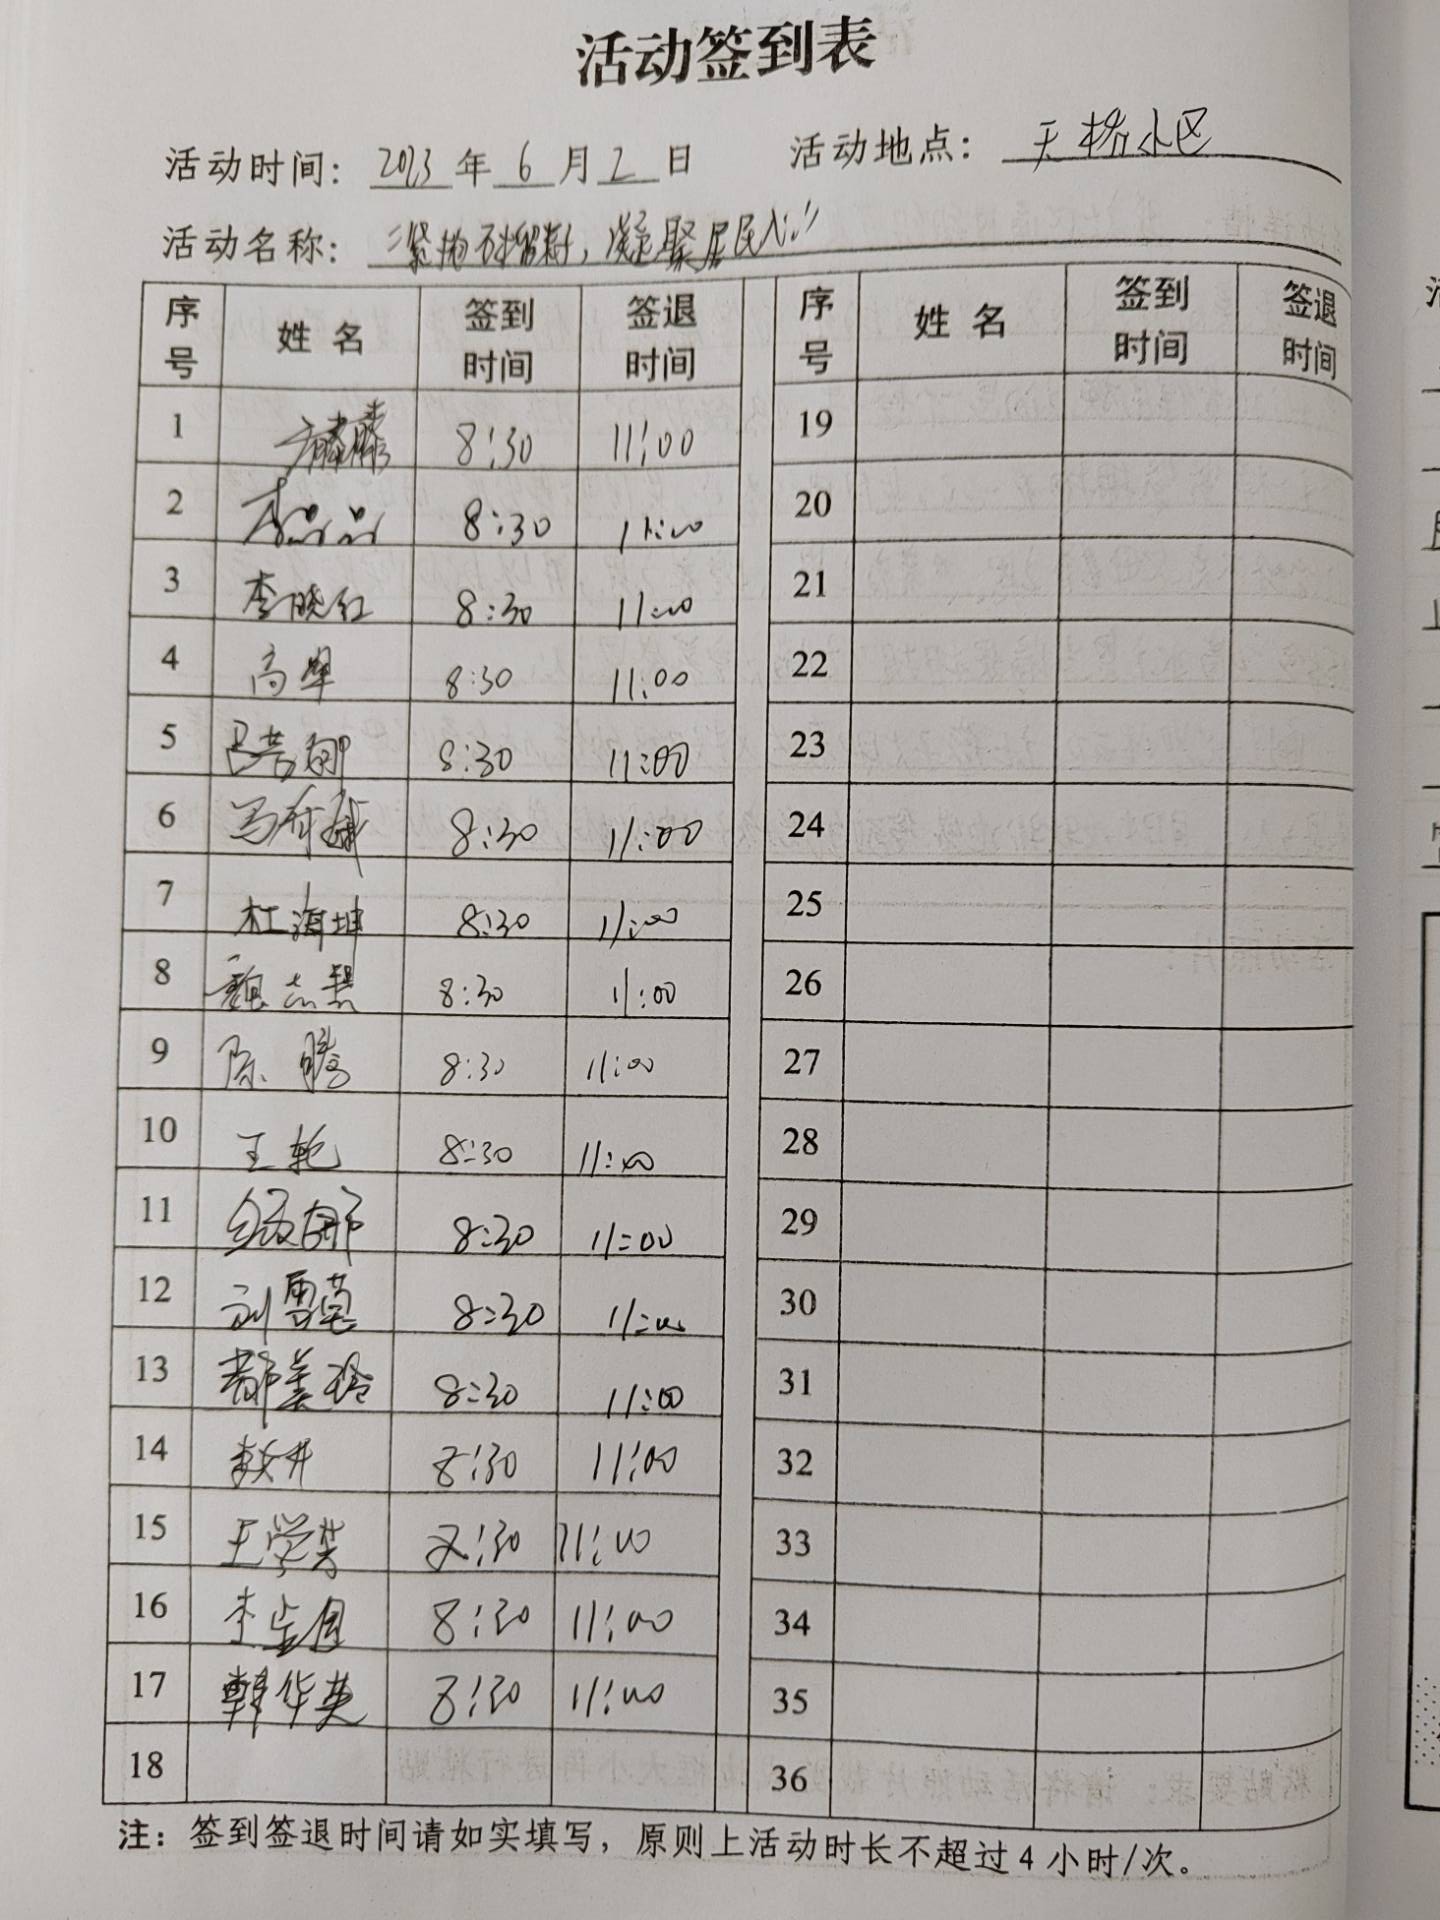 活动签到表
活动时间：2023年6月2日 活动地点：天桥小区
活动名称：凝聚居民人心
序号 姓名 签到时间 签退时间 序号 姓名 签到时间 签退时间
1 8:30 11:00 19
2 李品品 8:30 11:00 20
3 李晓红 8:30 11:00 21
4 高翠 8:30 11:00 22
5 8:30 11:00 23
6 8:30 11:00 24
7 杜海坤 8:30 11:00 25
8 魏志慧 8:30 11:00 26
9 陈腾 8:30 11:00 27
10 王艳 8:30 11:00 28
11 8:30 11:00 29
12 刘雪莲 8:30 11:00 30
13 郝美玲 8:30 11:00 31
14 8:30 11:00 32
15 王学芬 8:30 11:00 33
16 8:30 11:00 34
17 韩华英 8:30 11:00 35
18 36
注：签到签退时间请如实填写，原则上活动时长不超过4小时/次。